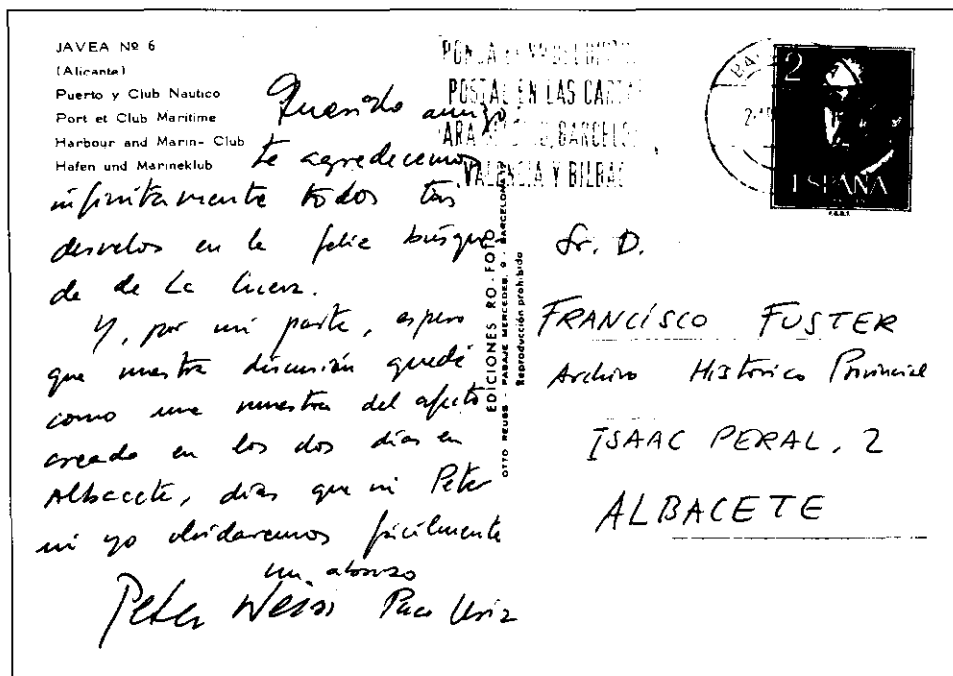 JAVEA Nº 6
(Alicante)
Puerto y Club Nautico
Port et Club Maritime
Harbour and Marin- Club
Hafen und Marineklub
Querido amigo:
te agredecemos
infinitamente todos tus
desvelos en la feliz búsque
da de La Cueva.
Y, por mi parte, espero
que nuestra discusión quede
como una muestra del afecto
creado en los dos días en
Albacete, días que ni Peter
ni yo olvidaremos fácilmente
un abrazo
Peter Weiss Paco Uriz
EDICIONES RO-FOTO
OTTO REUSS - PASAJE MERCEDES, 9 - BARCELONA
Reproducción prohibido
POSTAL EN LAS CARTAS
BARCELO
VALENCIA Y BILBAO
2
ESPAÑA
F.N.M.T.
Sr. D.
FRANCISCO FUSTER
Archivo Histórico Provincial
ISAAC PERAL, 2
ALBACETE